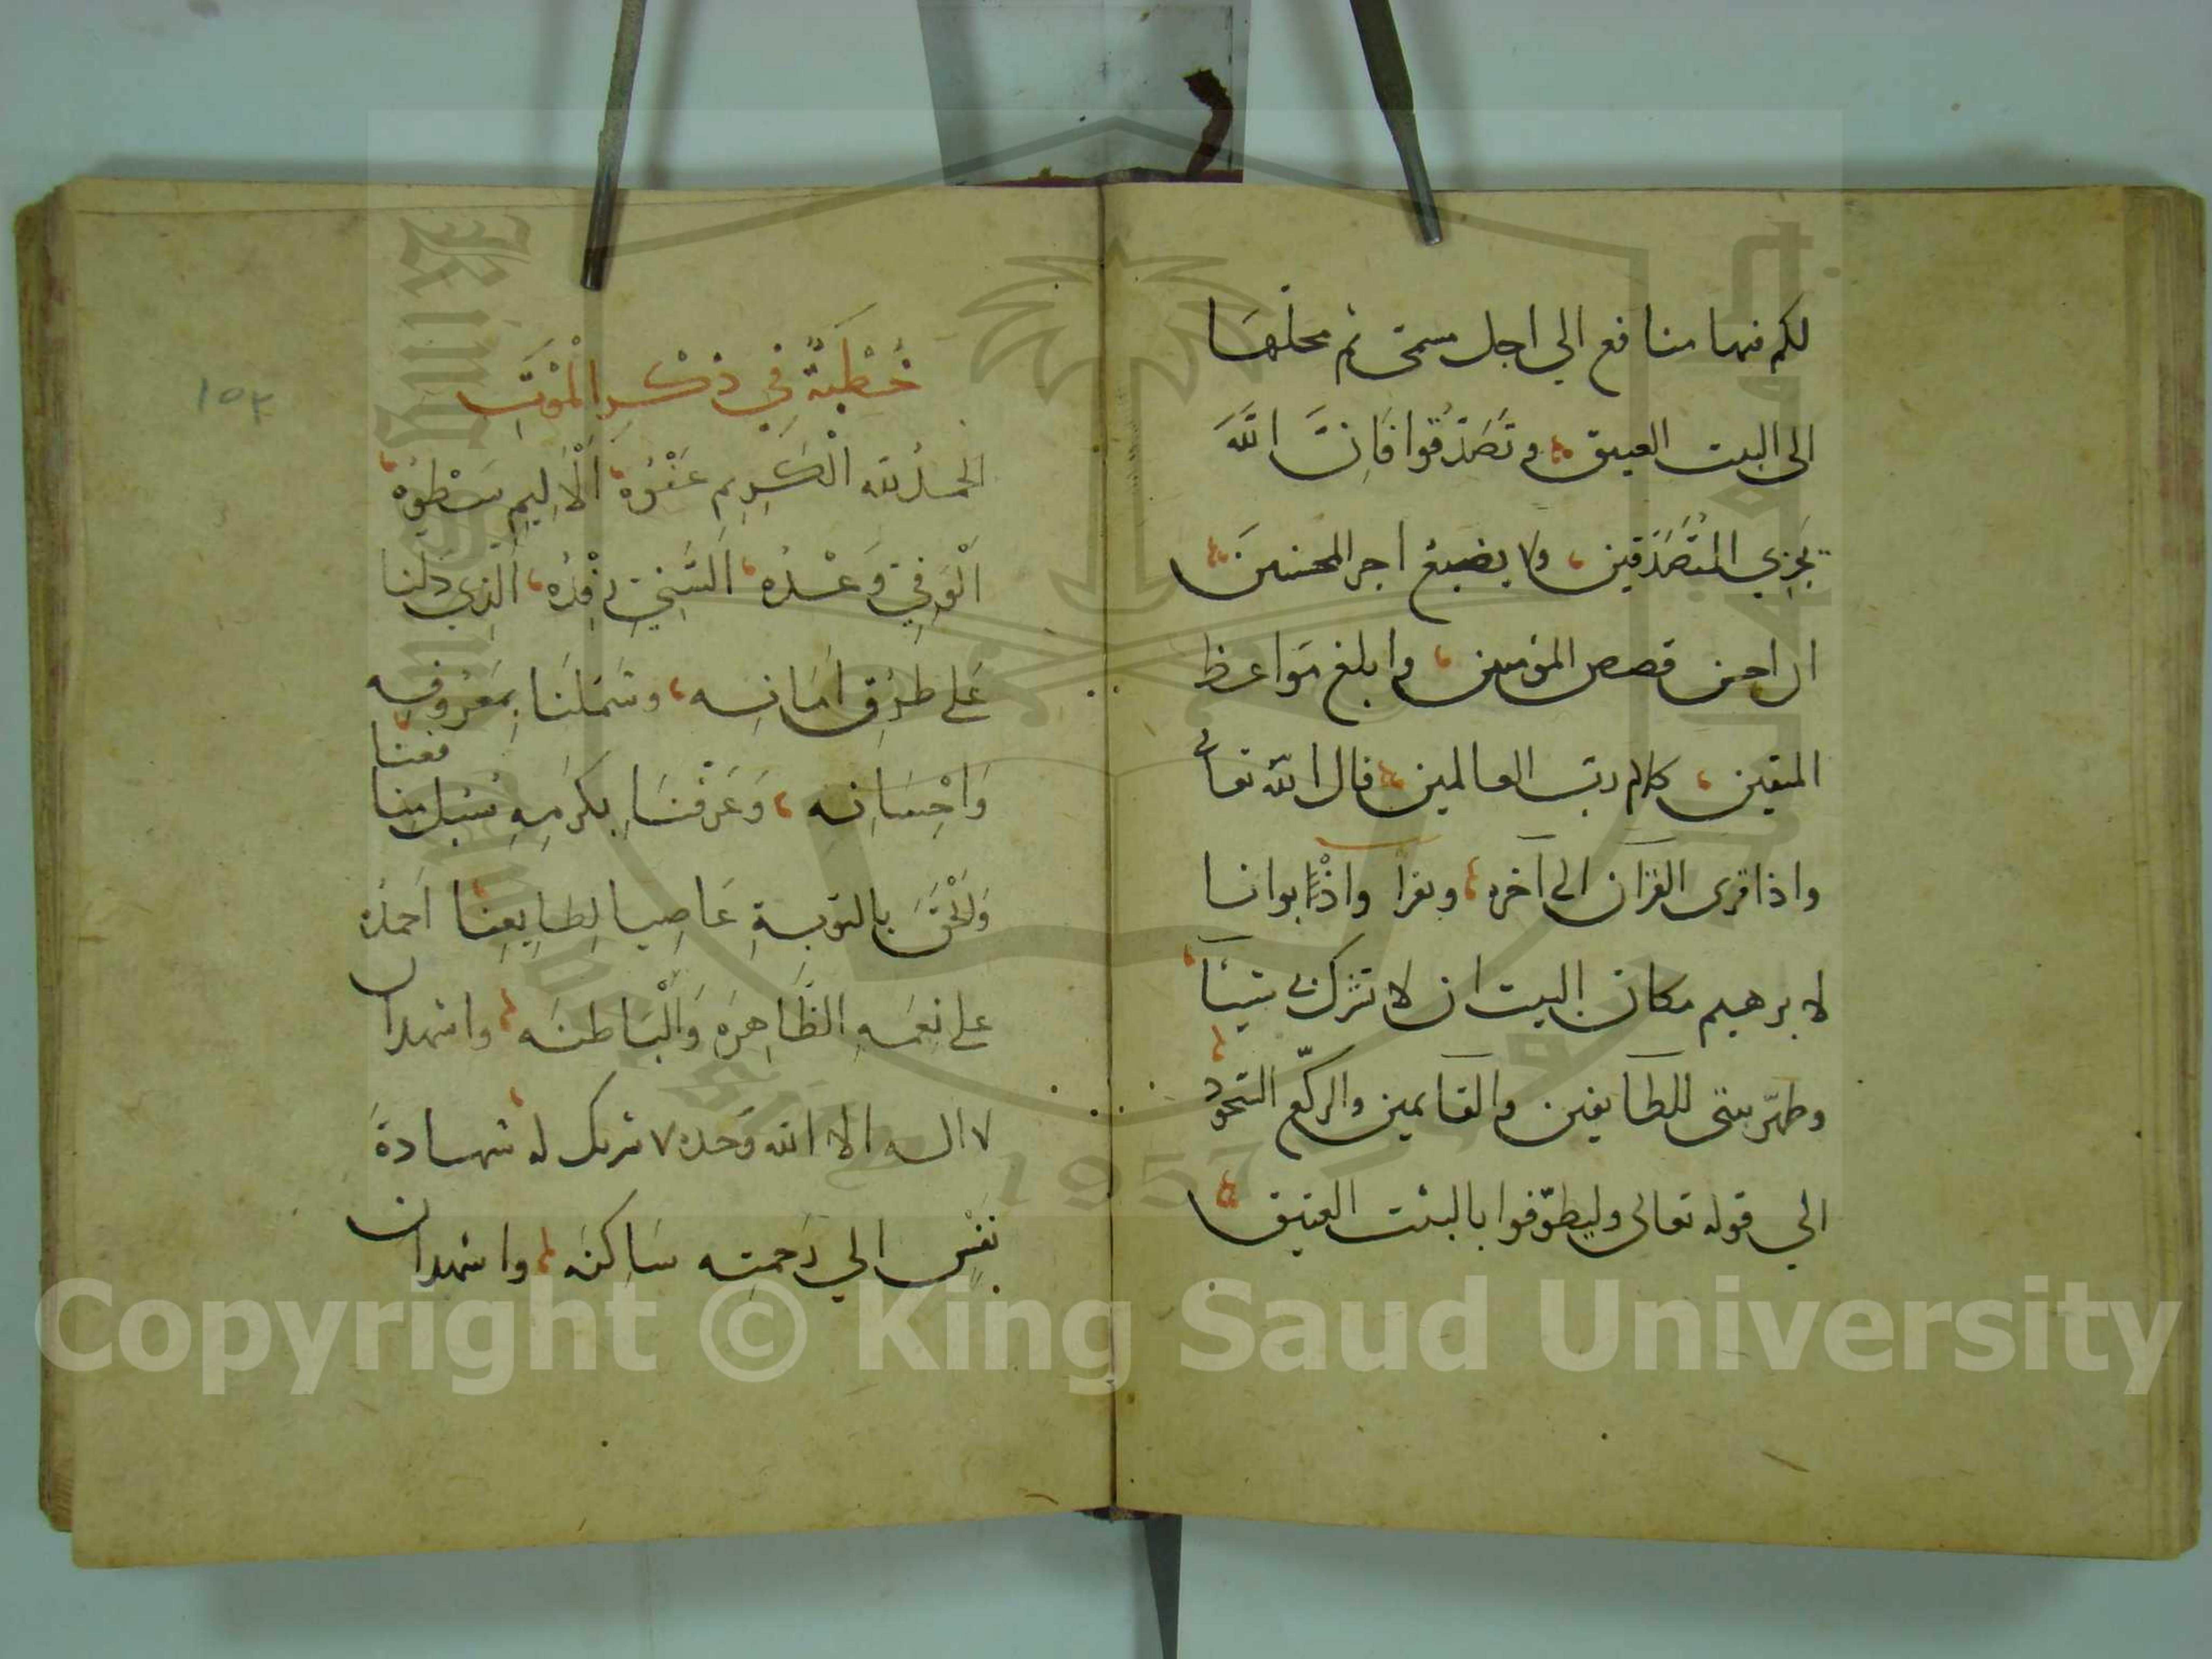 لكم فيها منافع الي اجل مسمى ثم محلها
الى البيت العتيق وتصدقوا فان الله
يجزي المتصدقين ولا يضيع اجر المحسنين
ان احسن قصص المؤمنين وابلغ مواعظ
المتقين كلام رب العالمين قال الله تعالى
واذا قرى القران الى آخره ويقرأ واذ بوانا
لابرهيم مكان البيت ان لا تشرك بي شيئا
وطهر بيتى للطايفين والقايمين والركع السجود
الي قوله تعالى وليطوفوا بالبيت العتيق
خُطْبَةٌ فِي ذِكْرِ الْمَوْتِ
١٥٣
الحمد لله الكريم عفوه الاليم سطوه
الوفي وعده السني رفده الذي دلنا
على طرق امانه وشملنا بمعروفه
واحسانه وعرفنا بكرمه سبل منافعنا
والحق بالتوبة عاصيا لطايعنا احمده
على نعمه الظاهره والباطنه واشهد ان
لا اله الا الله وحده لا شريك له شهادة
نفس الي رحمته ساكنه واشهد ان
Copyright © King Saud University
1957